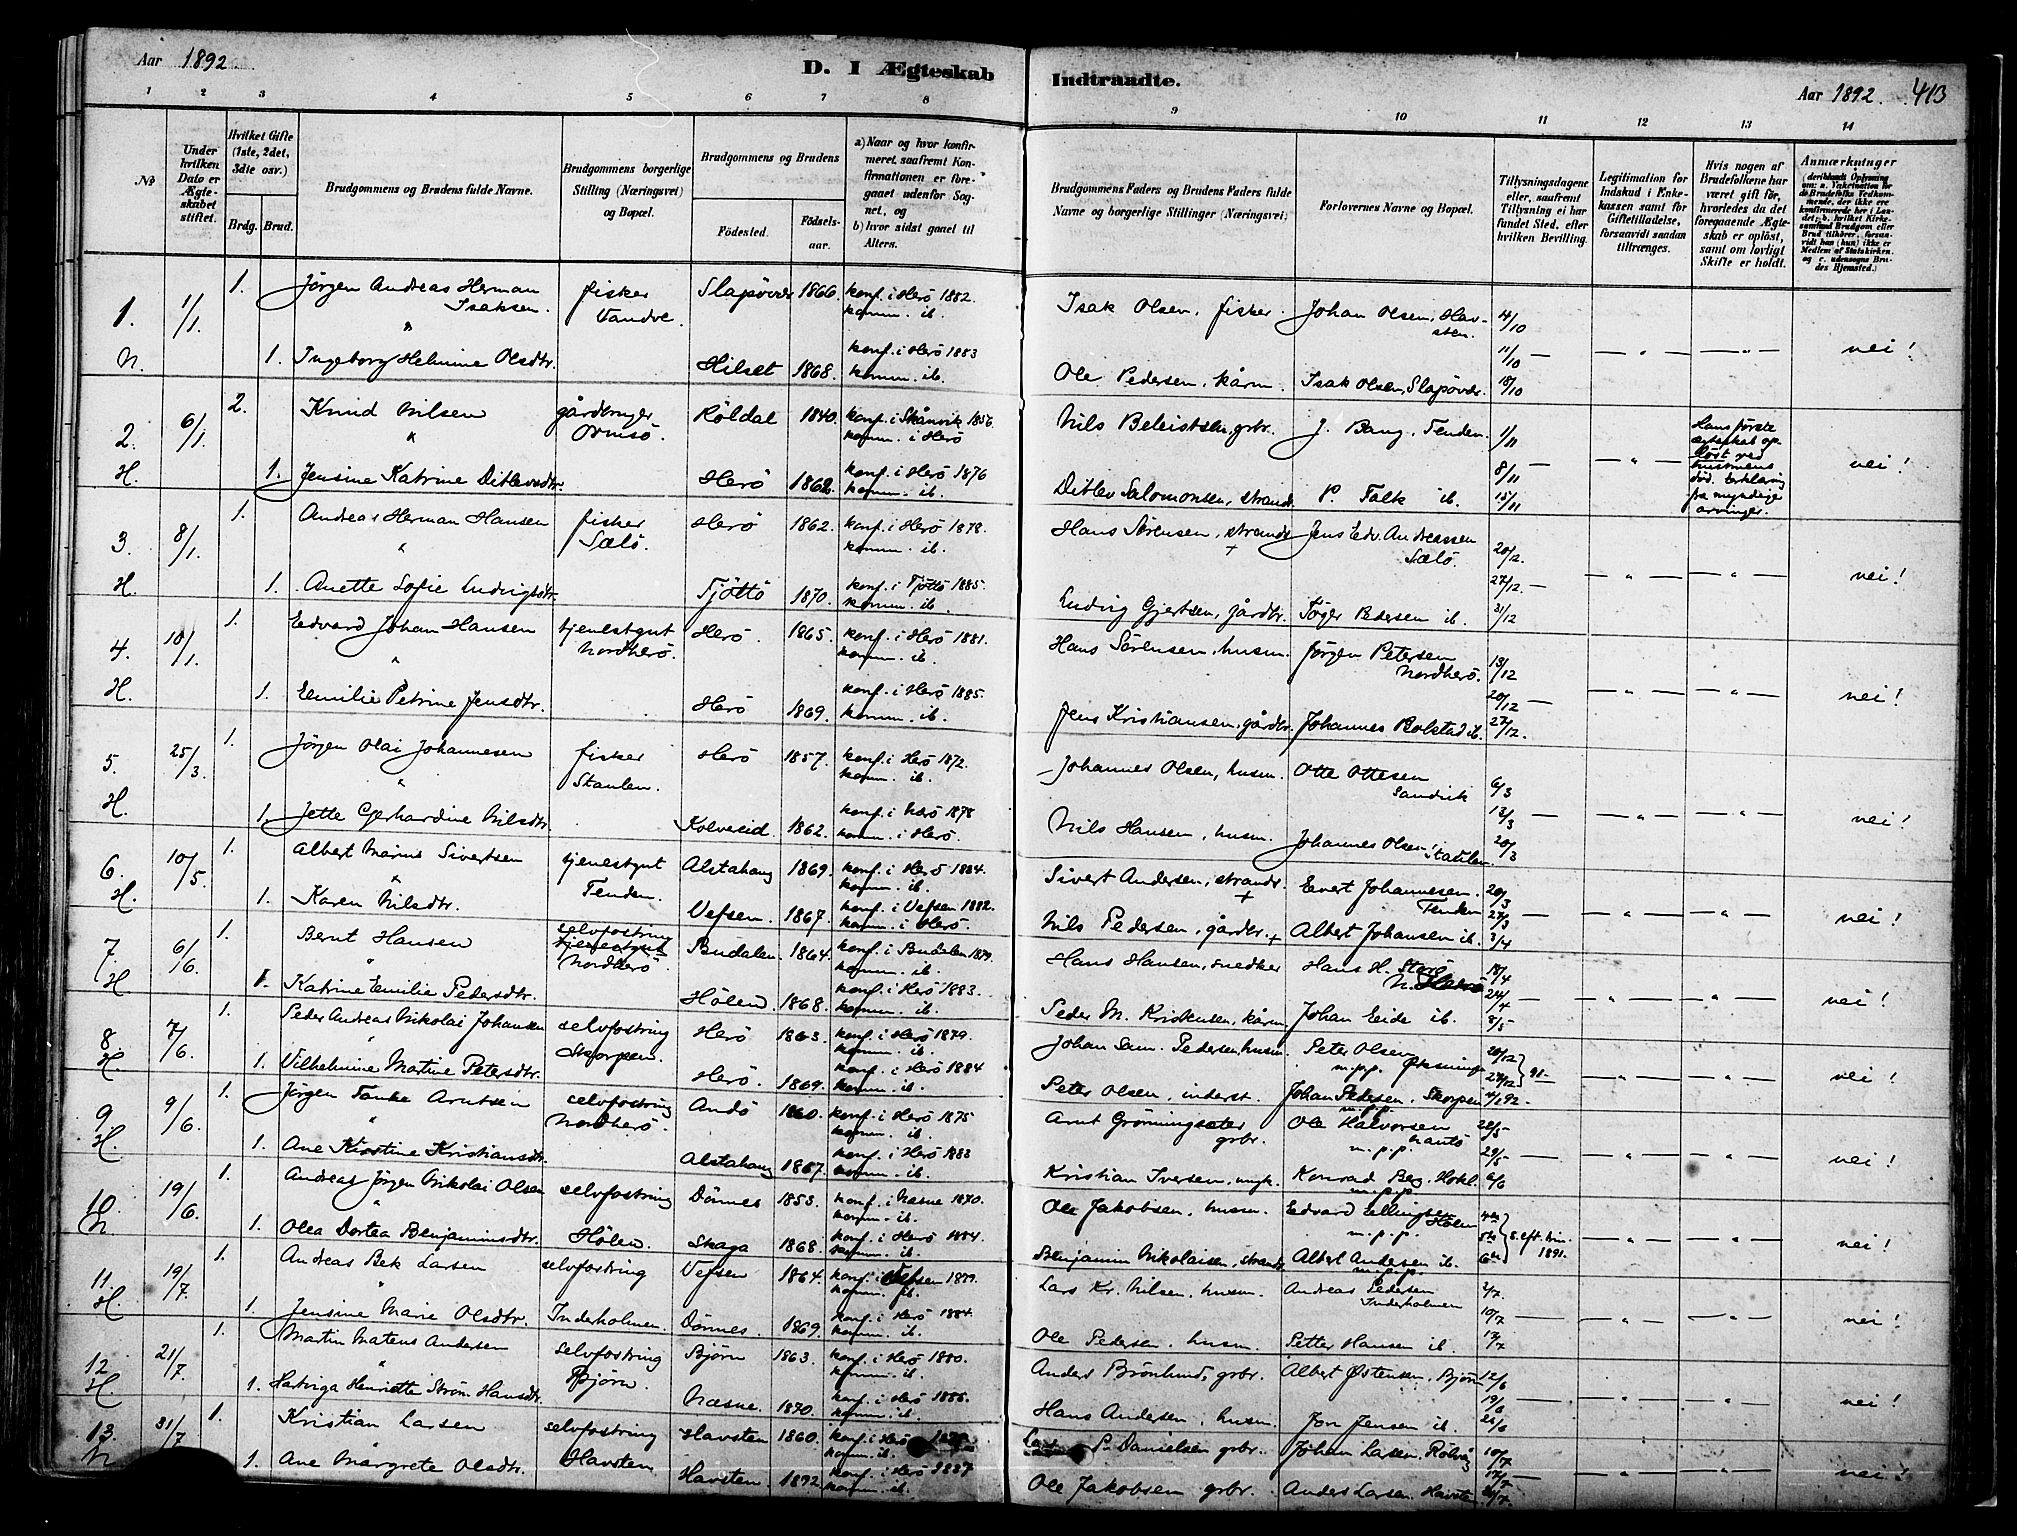 Aar 1892.
D. I Ægteskab Indtraadte.
Aar 1892. 413
1 2 3 4 5 6 7 8 9 10 11 12 13 14
No
Under hvilken Dato er Ægteskabet stiftet.
Hvilket Gifte (1ste, 2det, 3die osv.)
Brdg. Brud.
Brudgommens og Brudens fulde Navne.
Brudgommens borgerlige Stilling (Næringsvei) og Bopæl.
Brudgommens og Brudens
Födested.
Födselsaar.
a) Naar og hvor konfirmeret, saafremt Konfirmationen er foregaaet udenfor Sognet, og
b) hvor sidst gaaet til Alters.
Brudgommens Faders og Brudens Faders fulde Navne og borgerlige Stillinger (Næringsvei).
Forlovernes Navne og Bopæl.
Tillysningsdagene eller, saafremt Tillysning ei har fundet Sted, efter hvilken Bevilling.
Legitimation for Indskud i Enkekassen samt for Giftetilladelse, forsaavidt saadan tiltrænges.
Hvis nogen af Brudefolkene har været gift för, hvorledes da det foregaaende Ægteskab er oplöst, samt om lovligt Skifte er holdt.
Anmærkninger
1. 1/1. 1. Jörgen Andreas Herman Isaksen. fisker Vandve. Slapövær 1866. konf. i Herö 1882. komm. ib. Isak Olsen, fisker. Johan Olsen, Havsten. 4/10
N. 1. Ingeborg Helmine Olsdtr. Hilset 1868. konf. i Herö 1883 komm. ib. Ole Pedersen, kårm. Isak Olsen, Slapövær. 11/10 18/10 nei!
2. 6/1. 2. Knud Nilsen gårdbruger Ormsö. Röldal 1840. konf. i Skånvik 1856. komm. i Herö Nils Beleistsen, grbr. J. Bang, Tenden. 1/11 Hans förste ægteskab oplöst ved hustruens död. Erklæring fra myndige arvinger.
H. 1. Jensine Katrine Ditlevsdtr. Herö 1862. konf. i Herö 1876 komm. ib. Ditlev Salomonsen, strands. P. Falk ib. 8/11 15/11 nei!
3. 8/1. 1. Andreas Herman Hansen fisker Sælö. Herö 1862. konf. i Herö 1878. komm. ib. Hans Sörensen, strands. + Jens Edv. Andreassen Sælö. 20/12.
H. 1. Anette Sofie Ludvigsdtr. Tjöttö 1870. konf. i Tjöttö 1885. komm. ib. Ludvig Gjertsen, gårdbr. Töger Pedersen ib. 27/12. 31/12 nei!
4. 10/1. 1. Edvard Johan Hansen tjenestgut Nordherö. Herö. 1865. konf. i Herö 1881. komm. ib. Hans Sörensen, husm. Jörgen Petersen Nordherö. 13/12
H. 1. Emilie Petrine Jensdtr. Herö 1869. konf. i Herö 1885. komm. ib. Jens Kristiansen, gårdbr. Johannes Bolstad ib. 20/12 27/12. nei!
5. 25/3. 1. Jörgen Olai Johannesen fisker Staulen. Herö 1857. konf. i Herö 1872. komm. ib. Johannes Olsen, husm. Otte Ottesen Sandvik 6/3
H. 1. Jette Gerhardine Nilsdtr. Kolvereid 1862. konf. i Nærö 1878 komm. i Herö. Nils Hansen, husm. Johannes Olsen Staulen. 13/3 20/3 nei!
6. 10/5. 1. Albert Marius Sivertsen tjenestgut Tenden. Alstahaug 1869. konf. i Herö 1884. komm. ib. Sivert Andersen, strands. + Evert Johannesen Tenden 20/3
H. 1. Karen Nilsdtr. Vefsen. 1867. konf. i Vefsen 1882. komm. i Herö. Nils Pedersen, gårdbr. + Albert Johansen ib. 27/3 3/4 nei!
7. 6/6. 1. Bernt Hansen selvfostring tjenestgut Nordherö. Budalen 1864. konf. i Budalen 1879. komm. ib. Hans Hansen, snedker Hans H. Starö N. Herö 18/4
H 1. Katrine Emilie Pedersdtr. Hölen 1868. konf. i Herö 1883. komm. ib. Peder M. Kristensen, kårm. Johan Eide ib. 24/4 8/5 nei!
8. 7/6. 1. Peder Andreas Nikolai Johansen selvfostring Skorpen. Herö 1863. konf. i Herö 1879. komm. ib. Johan Sam. Pedersen, husm. Peter Olsen m.p.p. Öksningö 20/12
H. 1. Vilhelmine Martine Petersdtr. Herö. 1869. konf. i Herö 1884 komm. ib. Peter Olsen, inderst. Johan Pedersen, Skorpen m.p.p. 27/12 91. 4/1 92. nei!
9. 9/6. 1. Jörgen Tanke Arntsen selvfostring Nordherö. Andö 1860. konf. i Herö 1875 komm. ib. Arnt Gröningsæter grbr. Ole Halvorsen m.p.p. 28/5
H. 1. Ane Kirstine Kristiansdtr. Alstahaug 1867. konf. i Herö 1883 komm. ib. Kristian Iversen, ungk. Konrad Berg. Hokl. m.p.p. 29/5 6/6 nei!
10. 19/6. 1. Andreas Jörgen Nikolai Olsen selvfostring Hölen. Dönnes 1853. konf. i Næsne 1870. komm. ib. Ole Jakobsen, husm. Edvard Ellingsen Hölen m.p.p. 4de 5te 6te S. eft. trin. 1891.
N. 1. Olea Dortea Benjaminsdtr. Skaga 1868. konf. i Herö 1884. komm. ib. Benjamin Nikolaisen, strands. Albert Andersen ib. m.p.p. nei!
11. 19/7. 1. Andreas Bek Larsen selvfostring Inderholmen. Vefsen 1864. konf. i Vefsen 1879. komm. ib. Lars Kr. Nilsen, husm. Andreas Pedersen Inderholmen 3/7
H. 1. Jensine Marie Olsdtr. Dönnes. 1869. konf. i Herö 1884. komm. ib. Ole Pedersen, husm. Petter Hansen ib. 10/7 17/7 nei!
12. 21/7. 1. Martin Mateus Andersen selvfostring Bjorn. Bjorn 1863. konf. i Herö 1880. komm. ib. Anders Brönlund, grbr. Albert Östensen, Bjorn 12/6
H 1. Hatviga Henriette Ström Hansdtr. Næsne. 1870. konf. i Herö 1886. komm. ib. Hans Andersen, husm. Jon Jensen ib. 19/6 26/6 nei!
13. 31/7 1. Kristian Larsen selvfostring Havsten Havsten 1860. konf. i Herö komm. ib. Lars P. Danielsen grbr. Johan Larsen, Rölvåg 10/7
N 1. Ane Margrete Olsdtr. Havsten. 1892. konf. i Herö 1887 komm. ib. Ole Jakobsen grbr. Anders Larsen Havsten 17/7 24/7 nei!